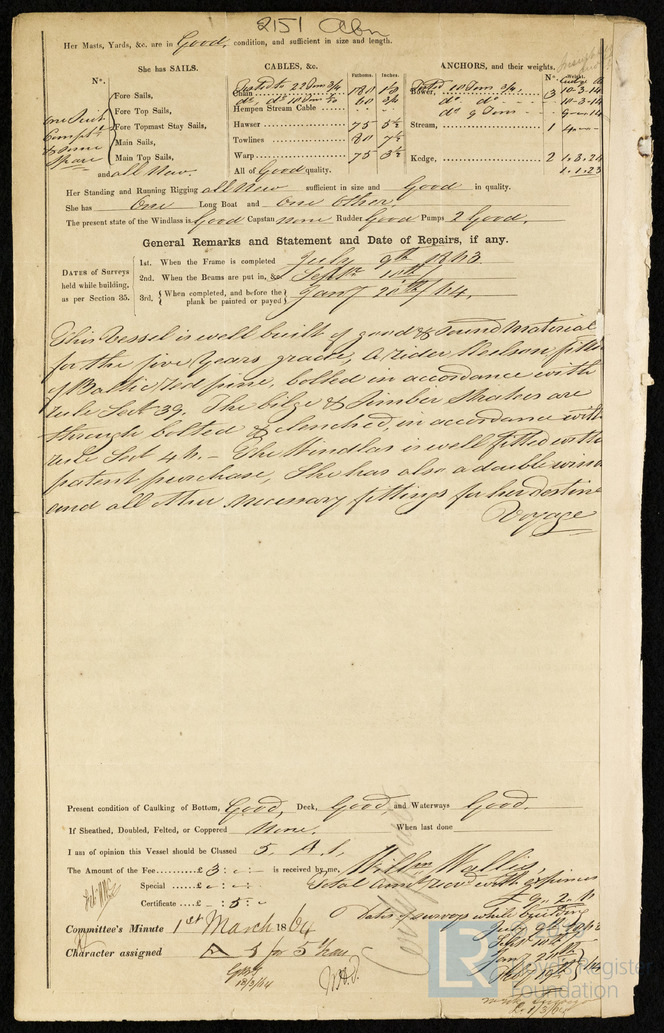 2151 Abn
Her Masts, Yards, &c. are in Good, condition, and sufficient in size and length.
She has SAILS.
CABLES, &c.
Fathoms.
Inches.
ANCHORS, and their weights.
No.
Weight.
No.
Fore Sails,
Fore Top Sails,
Fore Topmast Stay Sails,
Main Sails,
Main Top Sails,
One Suit
Spare
and all New.
Chain Tested to 22 Tons 3/4 180
do, do 10 Tons 60
Hempen Stream Cable
Hawser 75 5½
Towlines 80 7½
Warp 75 3½
All of Good quality.
Bower, 3 10-3-14
do do 10-3-14
do 9 Tons
Stream, 1 4
Kedge, 2 1.3.24
1.1.23
Her Standing and Running Rigging all New sufficient in size and Good in quality.
She has One Long Boat and One other
The present state of the Windlass is Good Capstan none Rudder Good Pumps 2 Good.
General Remarks and Statement and Date of Repairs, if any.
DATES of Surveys held while building, as per Section 35.
1st. When the Frame is completed July 9th 1863
2nd. When the Beams are put in, &c. Septr 10th
3rd, When completed, and before the plank be painted or payed Jany 20th /64.
This Vessel is well built of good & sound Material
for the five Years grade, A rider Keelson fitted
of Baltic red pine, bolted in accordance with
rule Sect 39. The bilge & Limber Strakes are
through bolted & clenched, in accordance with
rule Sect 44. – The Windlas is well fitted with
patent purchase, She has also a double winch
and all other necessary fittings for her destined
Voyage
Present condition of Caulking of Bottom, Good, Deck, Good and Waterways Good.
If Sheathed, Doubled, Felted, or Coppered None. When last done
I am of opinion this Vessel should be Classed 5. A.1,
The Amount of the Fee £ 3 : - : - is received by me, Willm Wallis,
Special £ : :
Certificate £ - : 5 : -
Dates of surveys while building
July 9th 1863
Septr 10th
Jany 20th
Committee's Minute 1st March 1864
Character assigned A 5 for 5 Years
18/3/64
1/3/64
LR
Lloyd's Register
Foundation